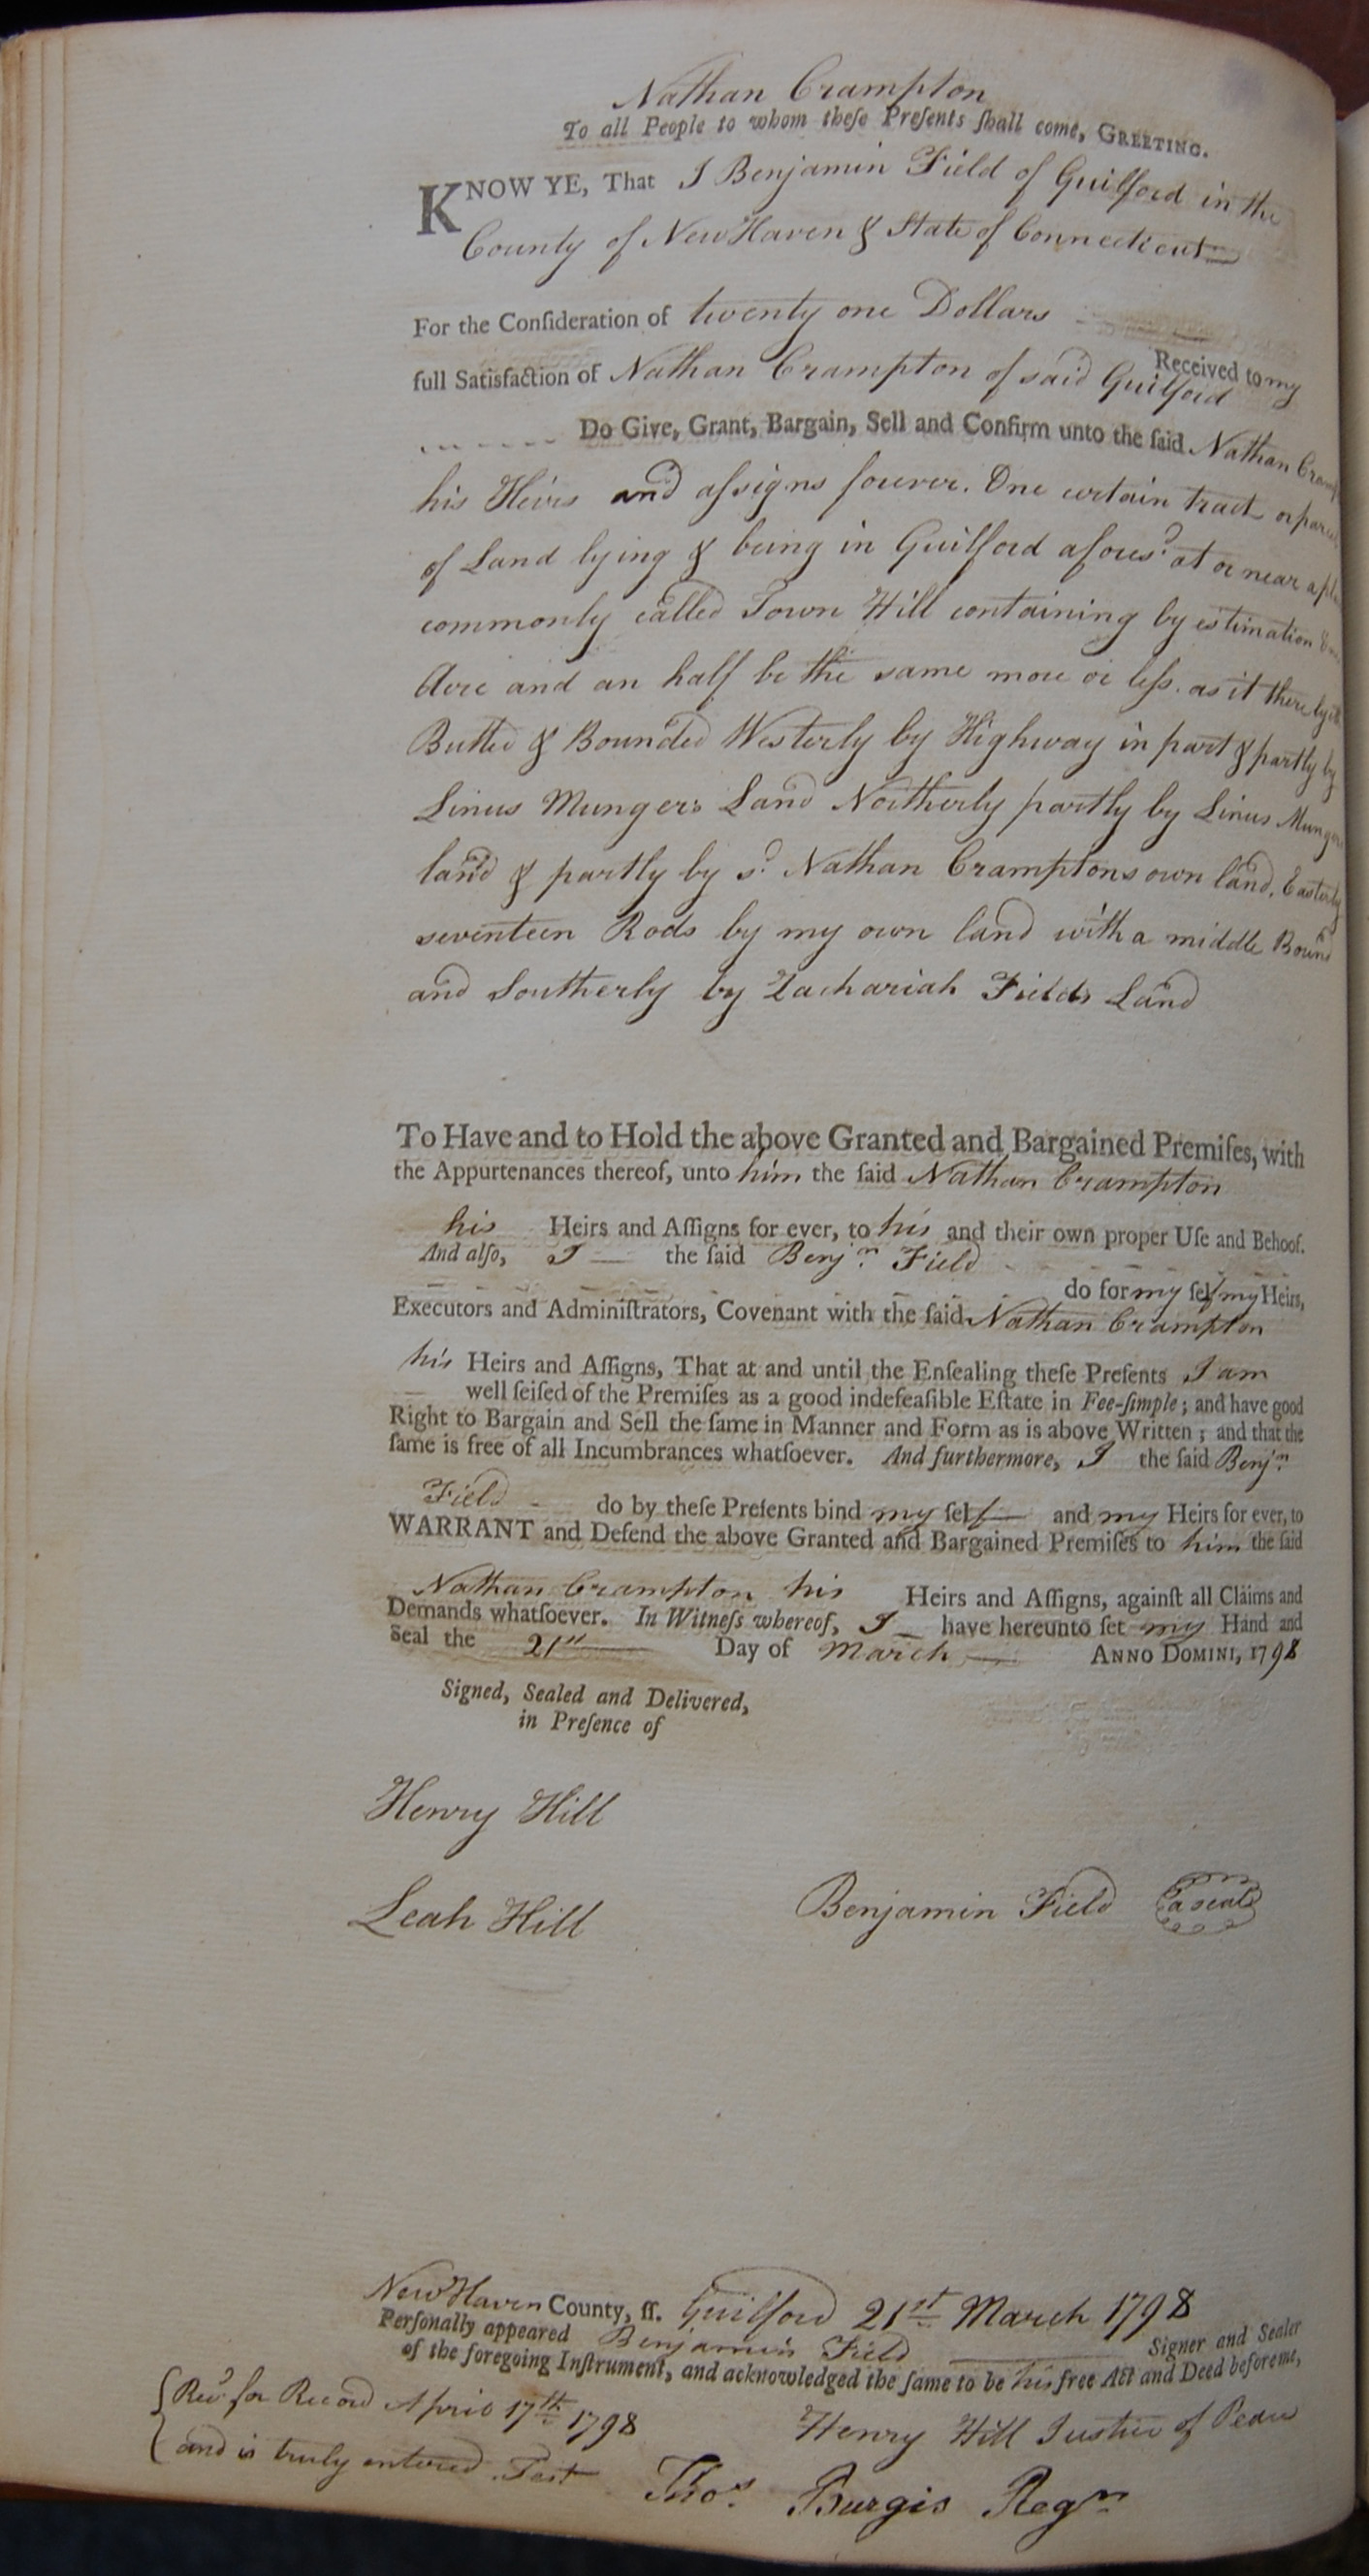 Nathan Crampton
To all People to whom theſe Preſents ſhall come, GREETING.
KNOW YE, That I Benjamin Field of Guilford in the
County of New Haven & State of Connecticut
For the Conſideration of twenty one Dollars
Received to my
full Satisfaction of Nathan Crampton of said Guilford
Do Give, Grant, Bargain, Sell and Confirm unto the ſaid Nathan Cramp
his Heirs and aſsigns forever. One certain tract or parcel
of Land lying & being in Guilford afores.d at or near a pla
commonly called Town Hill containing by estimation One
Acre and an half be the same more or leſs. as it there lyeth
Butted & Bounded Westerly by Highway in part & partly by
Linus Mungers Land Northerly partly by Linus Mungers
land & partly by s.d Nathan Cramptons own land, Easterly
seventeen Rods by my own land with a middle Bound
and Southerly by Zachariah Fields Land
To Have and to Hold the above Granted and Bargained Premiſes, with
the Appurtenances thereof, unto him the ſaid Nathan Crampton
his Heirs and Aſſigns for ever, to his and their own proper Uſe and Behoof.
And alſo, I the ſaid Benj.n Field
do for my ſelf my Heirs,
Executors and Adminiſtrators, Covenant with the ſaid Nathan Crampton
his Heirs and Aſſigns, That at and until the Enſealing theſe Preſents I am
well ſeiſed of the Premiſes as a good indefeaſible Eſtate in Fee-ſimple; and have good
Right to Bargain and Sell the ſame in Manner and Form as is above Written; and that the
ſame is free of all Incumbrances whatſoever. And furthermore, I the ſaid Benj.n
Field do by theſe Preſents bind my ſelf and my Heirs for ever, to
WARRANT and Defend the above Granted and Bargained Premiſes to him the ſaid
Nathan Crampton his Heirs and Aſſigns, againſt all Claims and
Demands whatſoever. In Witneſs whereof, I have hereunto ſet my Hand and
Seal the 21st Day of March ANNO DOMINI, 1798
Signed, Sealed and Delivered,
in Preſence of
Henry Hill
Leah Hill
Benjamin Field a seal
New Haven County, ſſ. Guilford 21st March 1798
Perſonally appeared Benjamin Field Signer and Sealer
of the foregoing Inſtrument, and acknowledged the ſame to be his free Act and Deed before me,
Henry Hill Justice of Peace
Rec.d for Record April 17th 1798
and is truly entered Test
Tho.s Burgis Reg.r